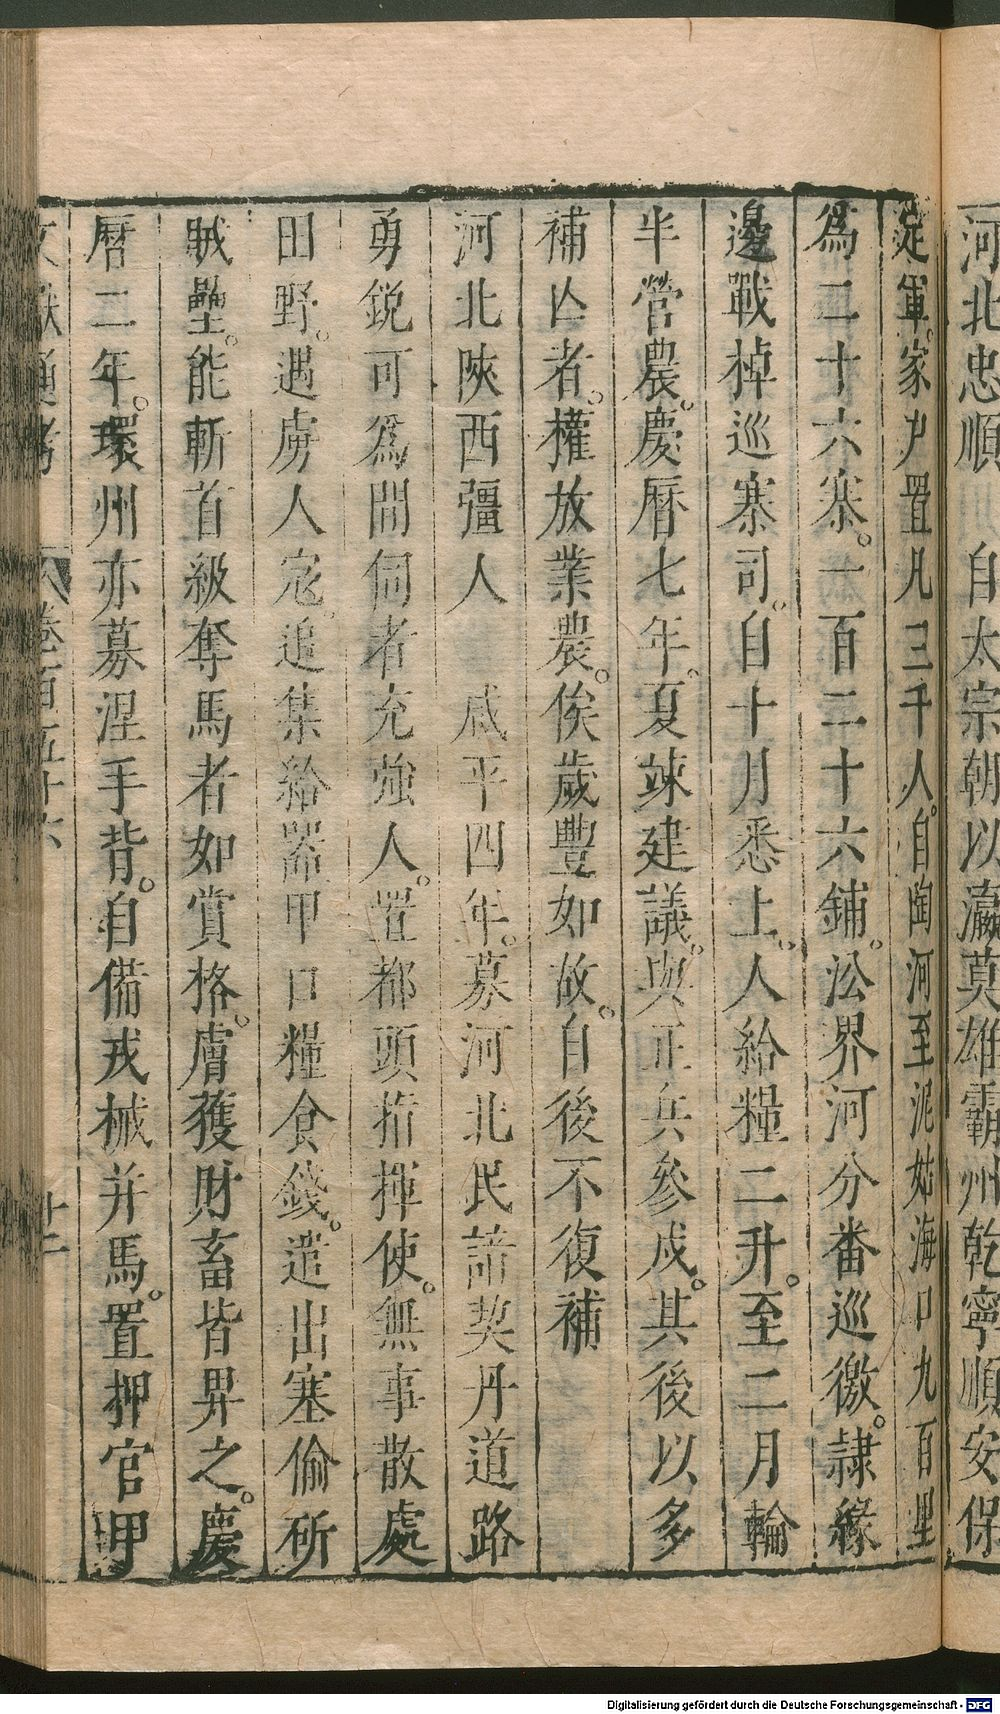 河北忠順 自太宗朝以瀛莫雄霸州乾寧順安保
定軍。家戶置凡三千人。自陶河至泥姑海口九百里
為二十六寨。一百二十六鋪。㳂界河分番巡徼。隷緣
邊戰棹巡寨司。自十月悉上。人給糧二升。至二月輪
半營農。慶曆七年。夏竦建議。與正兵參戍。其後以多
補亾者。權放業農。俟歲豐如故。自後不復補
河北陜西彊人 咸平四年。募河北民諳契丹道路
勇鋭可為間伺者充強人。置都頭指揮使。無事散處
田野。遇虜人寇。追集給器甲口糧食錢。遣出塞偷斫
賊壘。能斬首級奪馬者如賞格。虜獲財畜皆畀之。慶
曆二年。環州亦募涅手背。自備戎械并馬。置押官甲
文獻通考 卷百五十六 廿二
Digitalisierung gefördert durch die Deutsche Forschungsgemeinschaft - DFG